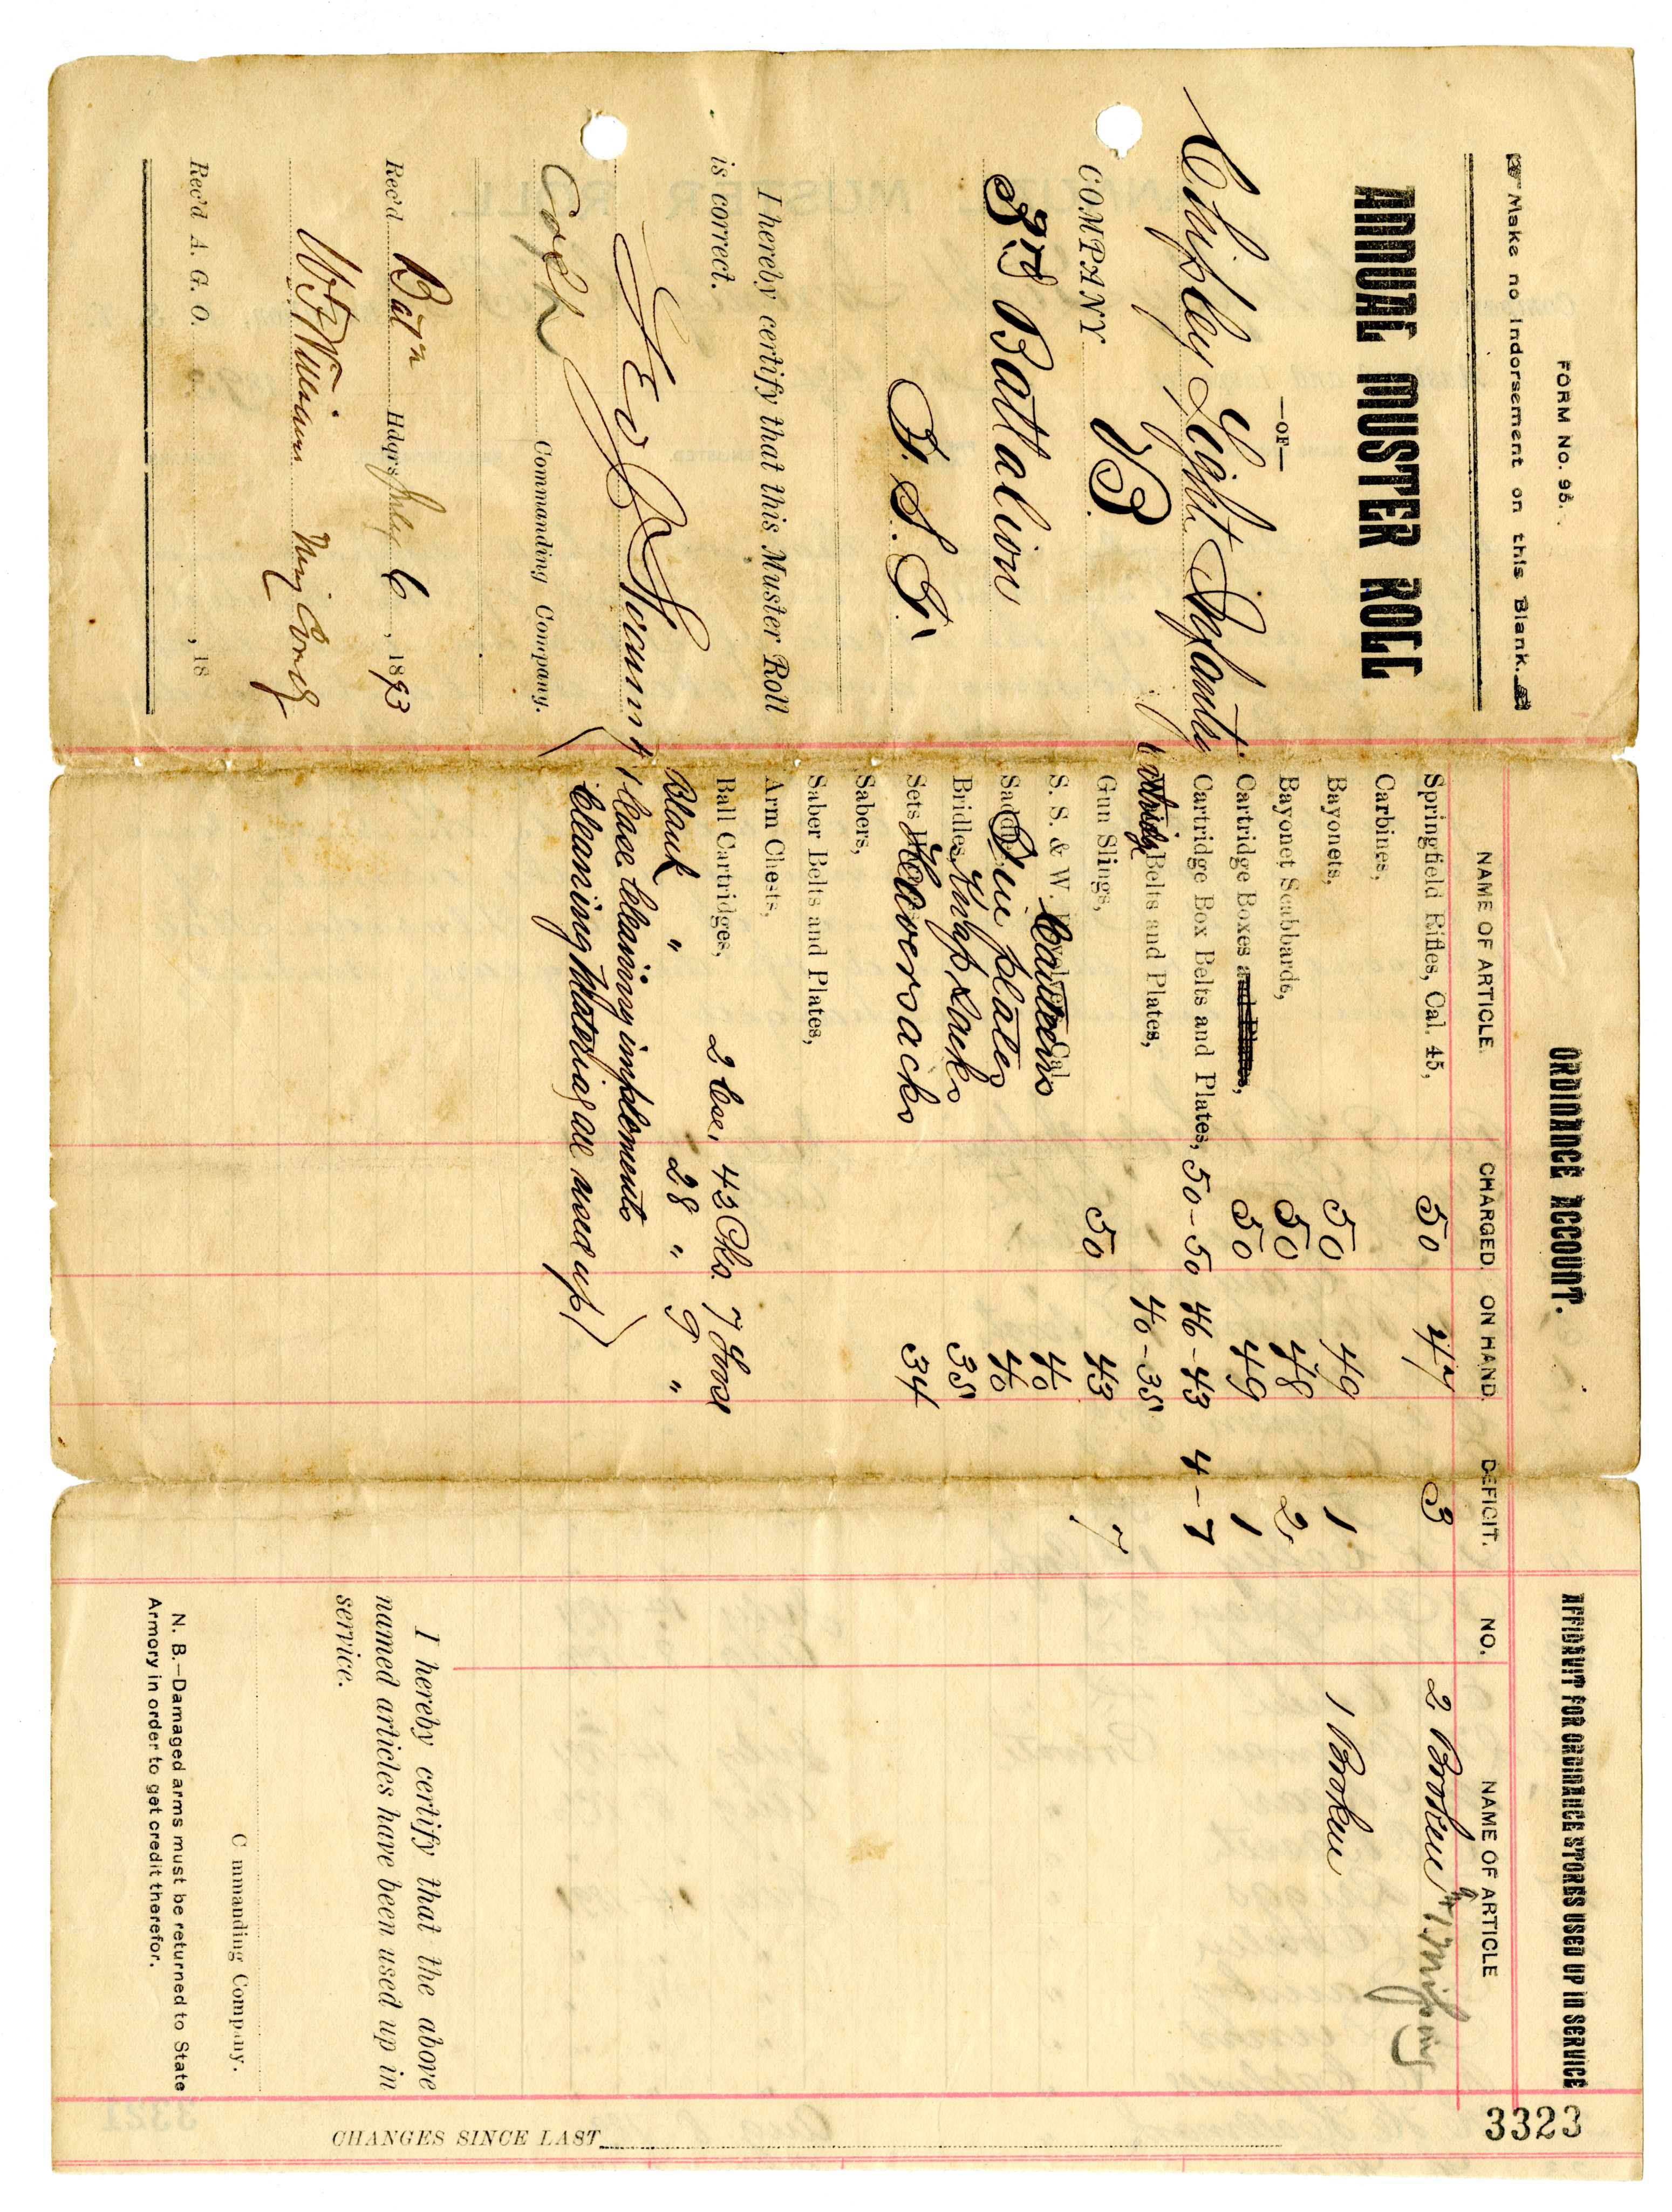 FORM No. 95.
Make no Indorsement on this Blank.
ANNUAL MUSTER ROLL
—OF—
Chipley Light Infantry
COMPANY B
3rd Battalion
F. S. T.
I hereby certify that this Muster Roll
is correct.
Capt
Commanding Company.
Rec'd Batn Hdqrs July 6, 1893
Rec'd A. G. O. , 18
ORDINANCE ACCOUNT.
NAME OF ARTICLE. CHARGED. ON HAND. DEFICIT.
Springfield Rifles, Cal. 45, 50 47 3
Carbines,
Bayonets, 50 49 1
Bayonet Scabbards, 50 48 2
Cartridge Boxes and Plates, 50 49 1
Cartridge Box Belts and Plates, 50-50 46-43 4-7
Cartridge Belts and Plates, 40-35
Gun Slings, 50 43 7
S. S. & W. Canteens 40
Gun plates 40
Bridles, Knapsacks 35
Sets Haversacks 34
Sabers,
Saber Belts and Plates,
Arm Chests,
Ball Cartridges, 2 Cse, 43 Pks. 7 Loose
Blank " 28 " 9 "
cleaning implements
Cleaning Material all used up)
AFFIDAVIT FOR ORDINANCE STORES USED UP IN SERVICE
NO. NAME OF ARTICLE
2 Broken & 1 Missing
1 Broken
I hereby certify that the above
named articles have been used up in
service.
C mmanding Company.
N. B.—Damaged arms must be returned to State
Armory in order to get credit therefor.
3323
CHANGES SINCE LAST